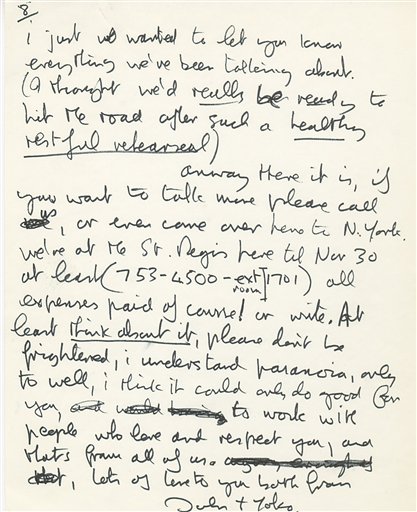 8
i just wanted to let you know
everything we've been talking about.
(I thought we'd really be ready to
hit the road after such a healthy
restful rehearsal)
anyway there it is, if
you want to talk more please call
us, or even come over here to N. York.
we're at the St. Regis here til Nov 30
at least (753-4500-ext room 1701) all
expenses paid of course! or write. At
least think about it, please don't be
frightened, i understand paranoia, only
to well, i think it could only do good for
you, to work with
people who love and respect you, and
thats from all of us.
lots of love to you both from
John + Yoko.